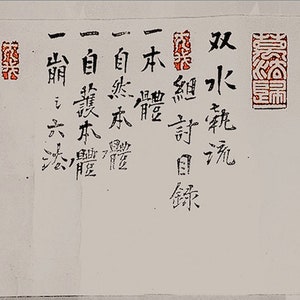 双水執流
組討目録
一本體
一自然本體
一自護本體
一崩之六法